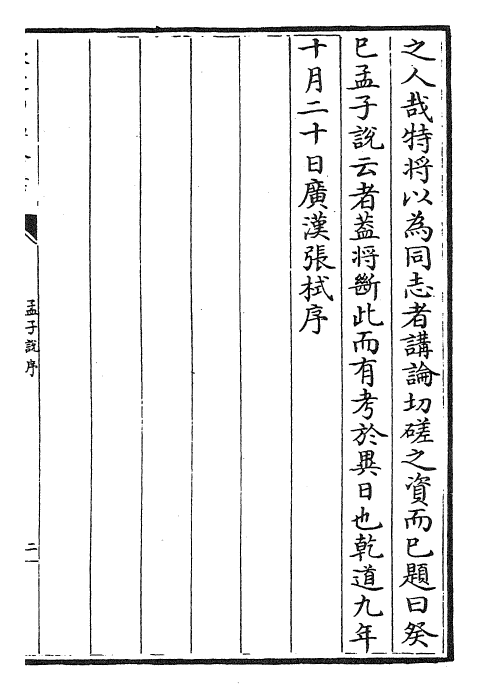 之人哉特将以為同志者講論切磋之資而已題曰癸
巳孟子說云者蓋将斷此而有考於異日也乾道九年
十月二十日廣漢張栻序
孟子說序
二